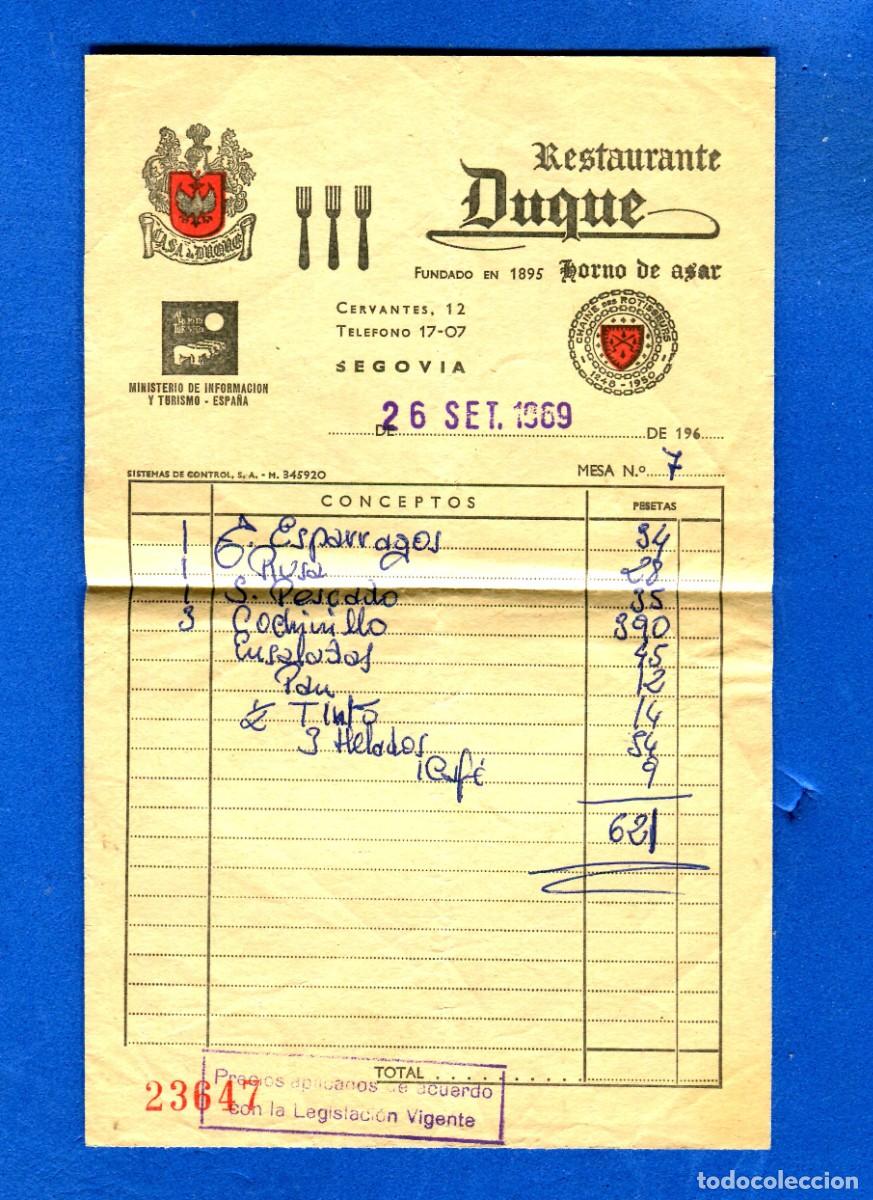 Restaurante
Duque
CASA DUQUE
FUNDADO EN 1895 Horno de asar
CERVANTES, 12
TELEFONO 17-07
SEGOVIA
CHAINE DES ROTISSEURS
1248 - 1950
MINISTERIO DE INFORMACION
Y TURISMO - ESPAÑA
26 SET. 1969
DE DE 196
SISTEMAS DE CONTROL, S, A. - M. 345920
MESA N.º 7
CONCEPTOS PESETAS
1 E. Esparragos 34
1 Rusa 28
1 S. Pescado 35
3 Cochinillo 390
Ensaladas 45
Pan 12
1/2 Tinto 14
3 Helados 54
1 Café 9
621
TOTAL
Precios aplicados de acuerdo
con la Legislación Vigente
23647
todocoleccion